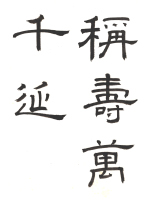 稱壽萬
千延